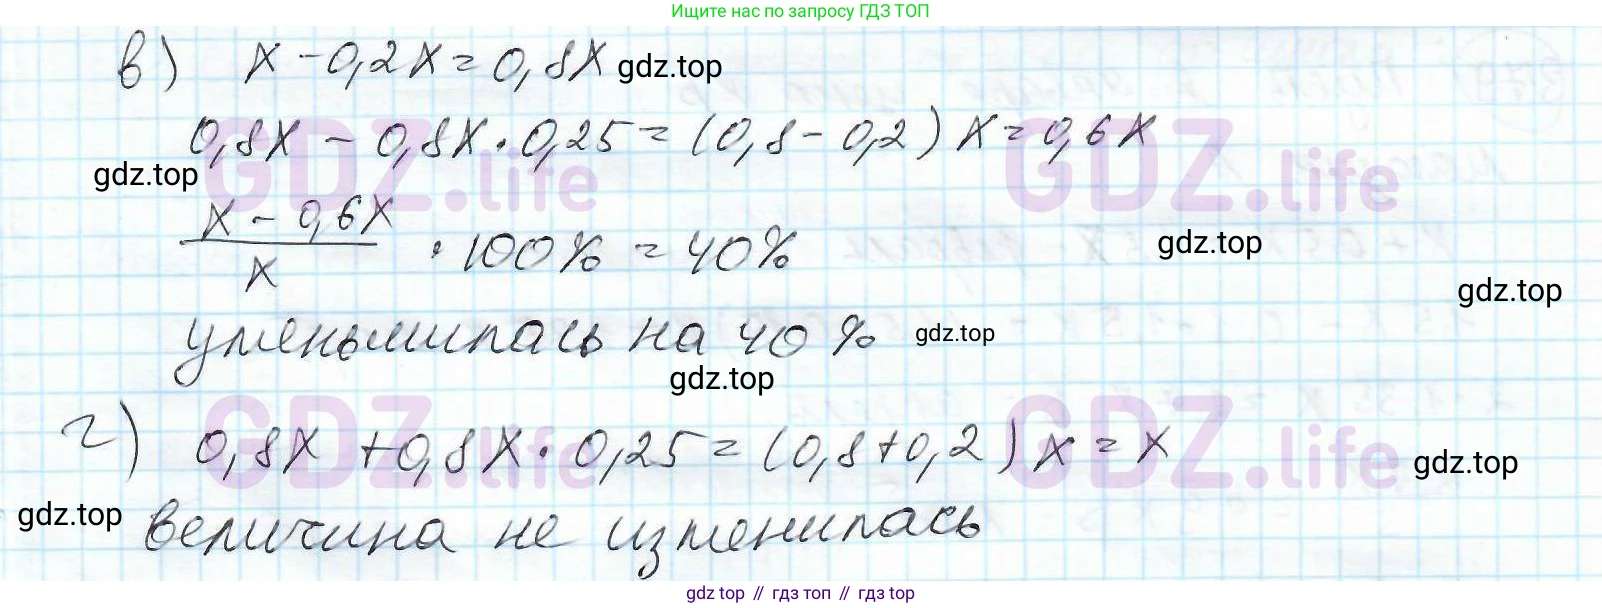 Ищите нас по запросу ГДЗ ТОП
в) x - 0,2x = 0,8x gdz.top
0,8x - 0,8x · 0,25 = (0,8 - 0,2) x = 0,6x
gdz.top GDZ.life GDZ.life
(x - 0,6x)/x · 100% = 40% gdz.top
gdz.top
уменьшилась на 40% gdz.top
gdz.top
GDZ.life GDZ.life
г) 0,8x + 0,8x · 0,25 = (0,8 + 0,2) x = x gdz.top
gdz.top величина не изменилась
gdz top // гдз топ // гдз top